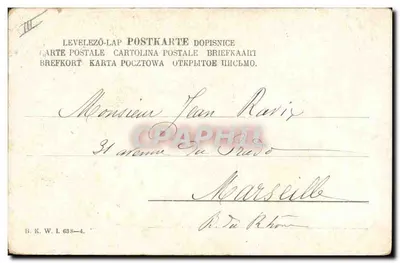 III
LEVELEZŐ-LAP POSTKARTE DOPISNICE
CARTE POSTALE CARTOLINA POSTALE BRIEFKAART
BREFKORT KARTA POCZTOWA ОТКРЫТОЕ ПИСЬМО.
Monsieur Jean Ravix
CPARPHIL
31 avenue du Prado
Marseille
B. du Rhône
B. K. W. I. 638—4.